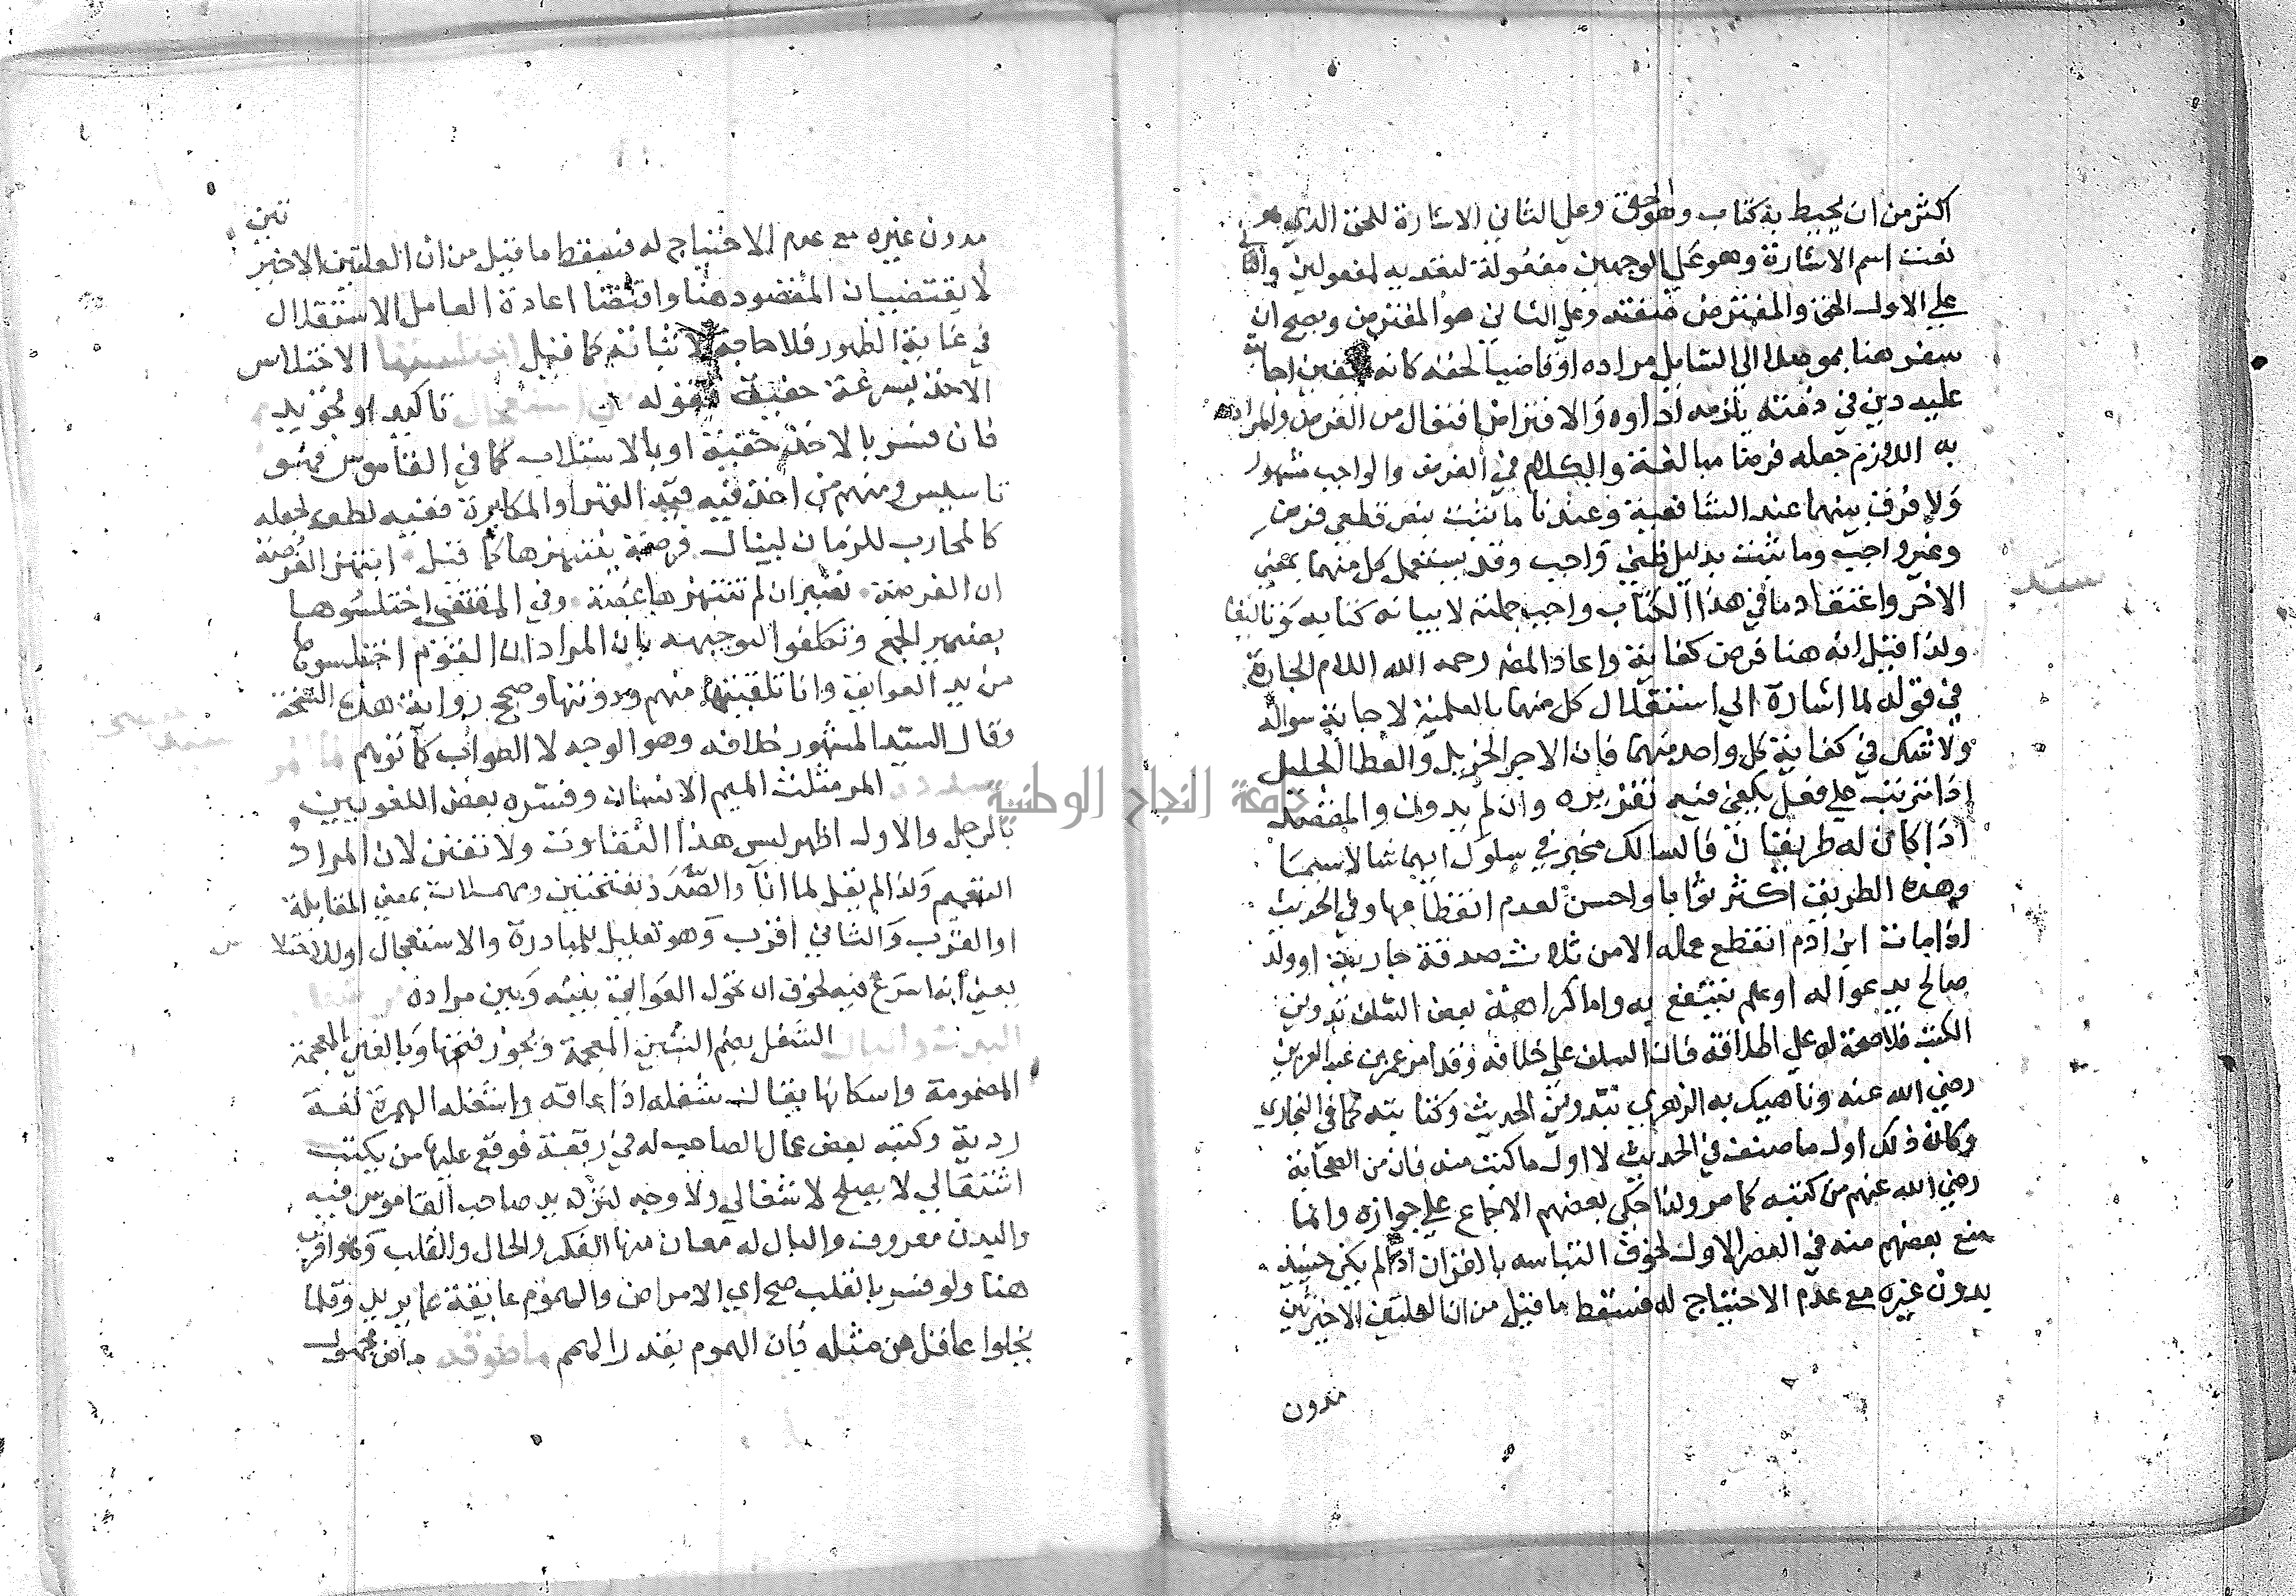 اكثر من ان يحيط به كتاب وهو الحق وعلي الثاني الاشارة للحق الذي هو
نعت اسم الاشارة وهو علي الوجهين مفعوله لتعديه لمفعولين والثاني
علي الاول الحق والمفترض صفته وعلي الثاني هو المفترض ويصح ان
يفسر هنا بموصلا الي السايل مراده او قاضيا لحقه كانه
عليه دين في ذمته يلزمه اداوه والافتراض افتعال من الفرض والمراد
به اللازم جعله فرضا مبالغة والكلام في الفرض والواجب مشهور
ولا فرق بينهما عند الشافعية وعندنا ما يثبت بنص قطعي فرض
وغيره واجب وما يثبت بدليل ظني واجب وقد يستعمل كل منهما بمعني
الاخر واعتقاد ما في هذا الكتاب واجب جملته لا بيانه كتابه وتاليفا
ولذا قيل انه هنا فرض كفاية واعاد المص رحمه الله اللام الجارة
في قوله لما اشارة الي استقلال كل منهما بالعلية لاجابة سواله
ولا شك في كفاية كل واحد منهما فان الاجر الجزيل والعطا الجليل
اذا ترتب علي فعل يكفي فيه تقريره وان لم يدون والمقصد
اذا كان له طريقان فالسالك مخير في سلوك ايهما شا لا سيما
وهذه الطريق اكثر ثوابا واحسن لعدم انقطاعها وفي الحديث
اذا مات ابن ادم انقطع عمله الا من ثلاث صدقة جارية او ولد
صالح يدعوا له او علم ينتفع به واما كراهة بعض السلف تدوين
الكتب فلا صحة له علي اطلاقه فان السلف علي خلافه وقد امر عمر بن عبد العزيز
رضي الله عنه وناهيك به الزهري بتدوين الحديث وكتابته كما في البخاري
وكان ذلك اول ما صنف في الحديث لا اول ما كتب منه فان من الصحابة
رضي الله عنهم من كتبه كما مر ولذا حكي بعضهم الاجماع علي جوازه وانما
منع بعضهم منه في العصر الاول لخوف التباسه بالقران اذا لم يكن حينيذ
بدون غيره مع عدم الاحتياج له فسقط ما قيل من ان العلتين الاخيرتين
مدون
مدون غيره مع عدم الاحتياج له فسقط ما قيل من ان العلتين الاخيرتين
لا يقتضيان المقصود هنا واقتضا اعادة العامل الاستقلال
في غاية الظهور فلا حاجة لاثباته كما قيل الاختلاس
الاخذ بسرعة خفية فقوله تاكيد او تجريد
فان فسر بالاخذ خفية او بالاستلاب كما في القاموس فهو
تاسيس ومنهم من اخذ فيه قيد القهر او المكابرة ففيه لطف لجعله
كالمحارب للزمان لينال فرصة ينتهزها كما قيل انتهز الفرصة
ان الفرصة تصير ان لم تنتهزها غصة وفي المقتفي اختلسوها
بضمير الجمع وتكلفوا لتوجيهه بان المراد ان القوم اختلسوها
من يد العوايق وانا تلقيتها منهم ودونتها وصحح رواية هذه النسخة
وقال السيد المشهور خلافه وهو الوجه لا الصواب كما توهم
المر مثلث الميم الانسان وفسره بعض اللغويين
بالرجل والاول اظهر ليس هذا التفاوت ولا تفنن لان المراد
التعميم ولذا لم يقل لما انا والصدد بفتحتين ومهملات بمعني المقابلة
او القرب والثاني اقرب وهو تعليل للمبادرة والاستعجال او للاختلاس
يعني انما سرع فيه لخوف ان تحول العوايق بينه وبين مراده
البدن والبال الشغل بضم الشين المعجمة ويجوز فتحها وبالغين المعجمة
المضمومة واسكانها يقال شغله اذا عاقه واشغله بالهمزة لغة
ردية وكتب بعض عمال الصاحب له في رقعة فوقع عليها من يكتب
اشتغالي لا يصلح لاشغالي ولا وجه لتردد صاحب القاموس فيه
والبدن معروف والبال له معان منها الفكر والحال والقلب وهو اقرب
هنا ولو فسر بالقلب صح اي الامراض والهموم عايقة عما يريد وقلما
يخلوا عاقل من مثله فان الهموم بقدر الهمم ما طوقه ماض مجهول
جامعة النجاح الوطنية